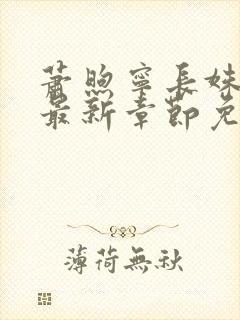 蕭煦寧長姝
最新章節免
薄荷無秋